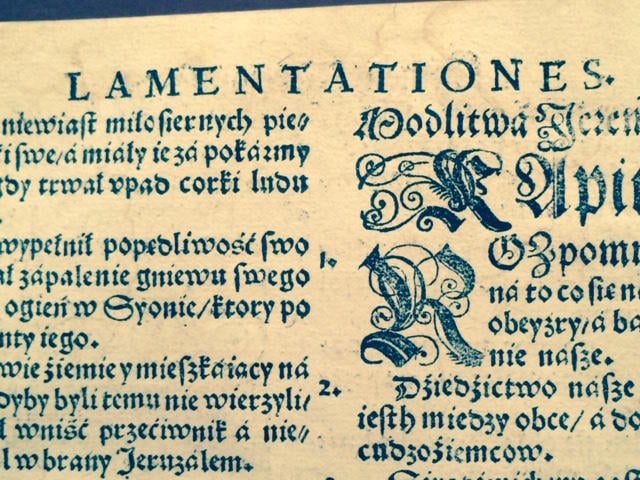 LAMENTATIONES.
niewiast miłosiernych pie⸗
ki swe/á miáły ie zá pokármy
gdy trwał vpad corki ludu
wypełnił popędliwość swo
ał zápalenie gniewu swego
ogień w Syonie/ktory po
nty iego.
wie źiemie y mieszkáiący ná
dyby byli temu nie wierzyli/
ł wniść przećiwnik á nie⸗
l w brany Jeruzálem.
Modlitwá Jerem
KApit
1.
ROZpomi
ná to co sie n
obeyźrzy/á ba
nie násze.
2.
Dźiedźictwo násze
iesth miedzy obce/ á do
cudzoźiemcow.